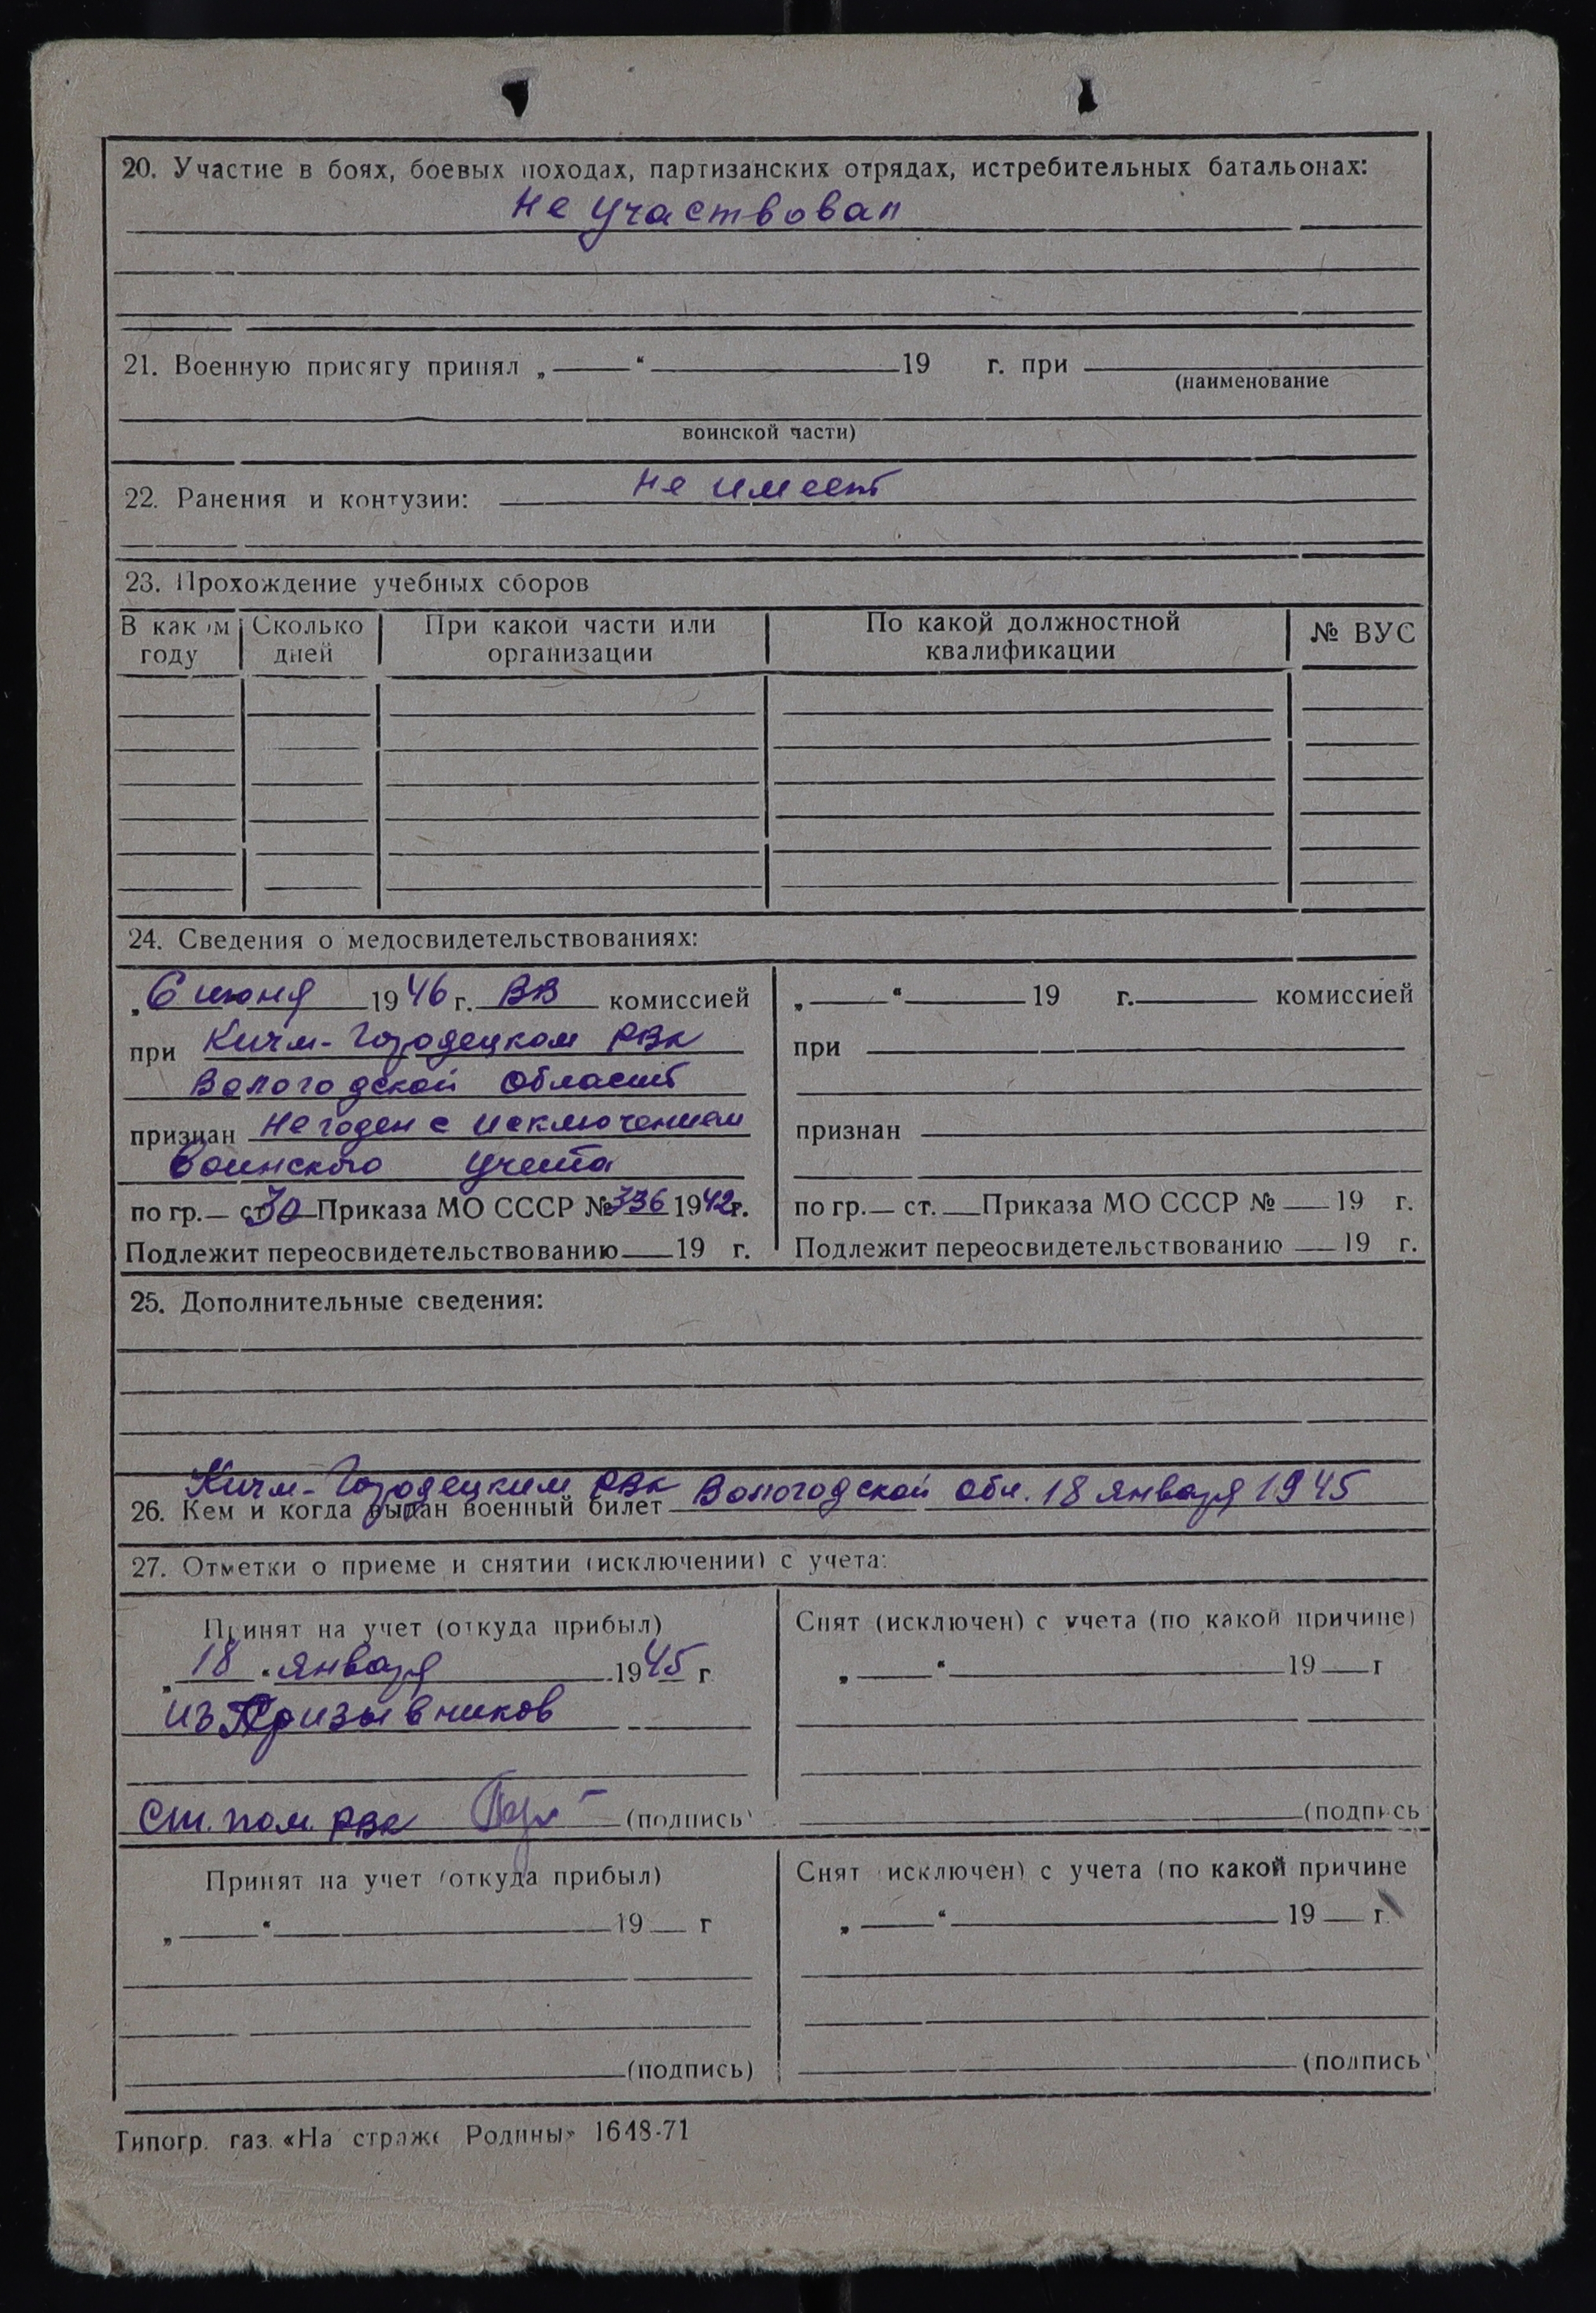 20. Участие в боях, боевых походах, партизанских отрядах, истребительных батальонах:
Не участвовал
21. Военную присягу принял „ “ 19 г. при
(наименование
воинской части)
22. Ранения и контузии: не имеет
23. Прохождение учебных сборов
В каком году Сколько дней При какой части или организации По какой должностной квалификации № ВУС
24. Сведения о медосвидетельствованиях:
„6 июня 1946 г. ВВ комиссией
при Кичм-Городецком РВК
Вологодской области
признан Не годен с исключением
воинского учета
по гр.— ст.30 Приказа МО СССР №336 1942г.
Подлежит переосвидетельствованию 19 г.
„ “ 19 г. комиссией
при
признан
по гр.— ст. Приказа МО СССР № 19 г.
Подлежит переосвидетельствованию 19 г.
25. Дополнительные сведения:
Кичм-Городецким РВК
26. Кем и когда выдан военный билет Вологодской обл. 18 января 1945
27. Отметки о приеме и снятии (исключении) с учета:
Принят на учет (откуда прибыл)
„18“ января 1945 г
из Призывников
Ст. пом. РВК (подпись)
Снят (исключен) с учета (по какой причине)
„ “ 19 г
(подпись
Принят на учет (откуда прибыл)
„ “ 19 г
(подпись)
Снят исключен) с учета (по какой причине
„ “ 19 г.
(подпись
Типогр. газ. «На страже Родины» 1648-71